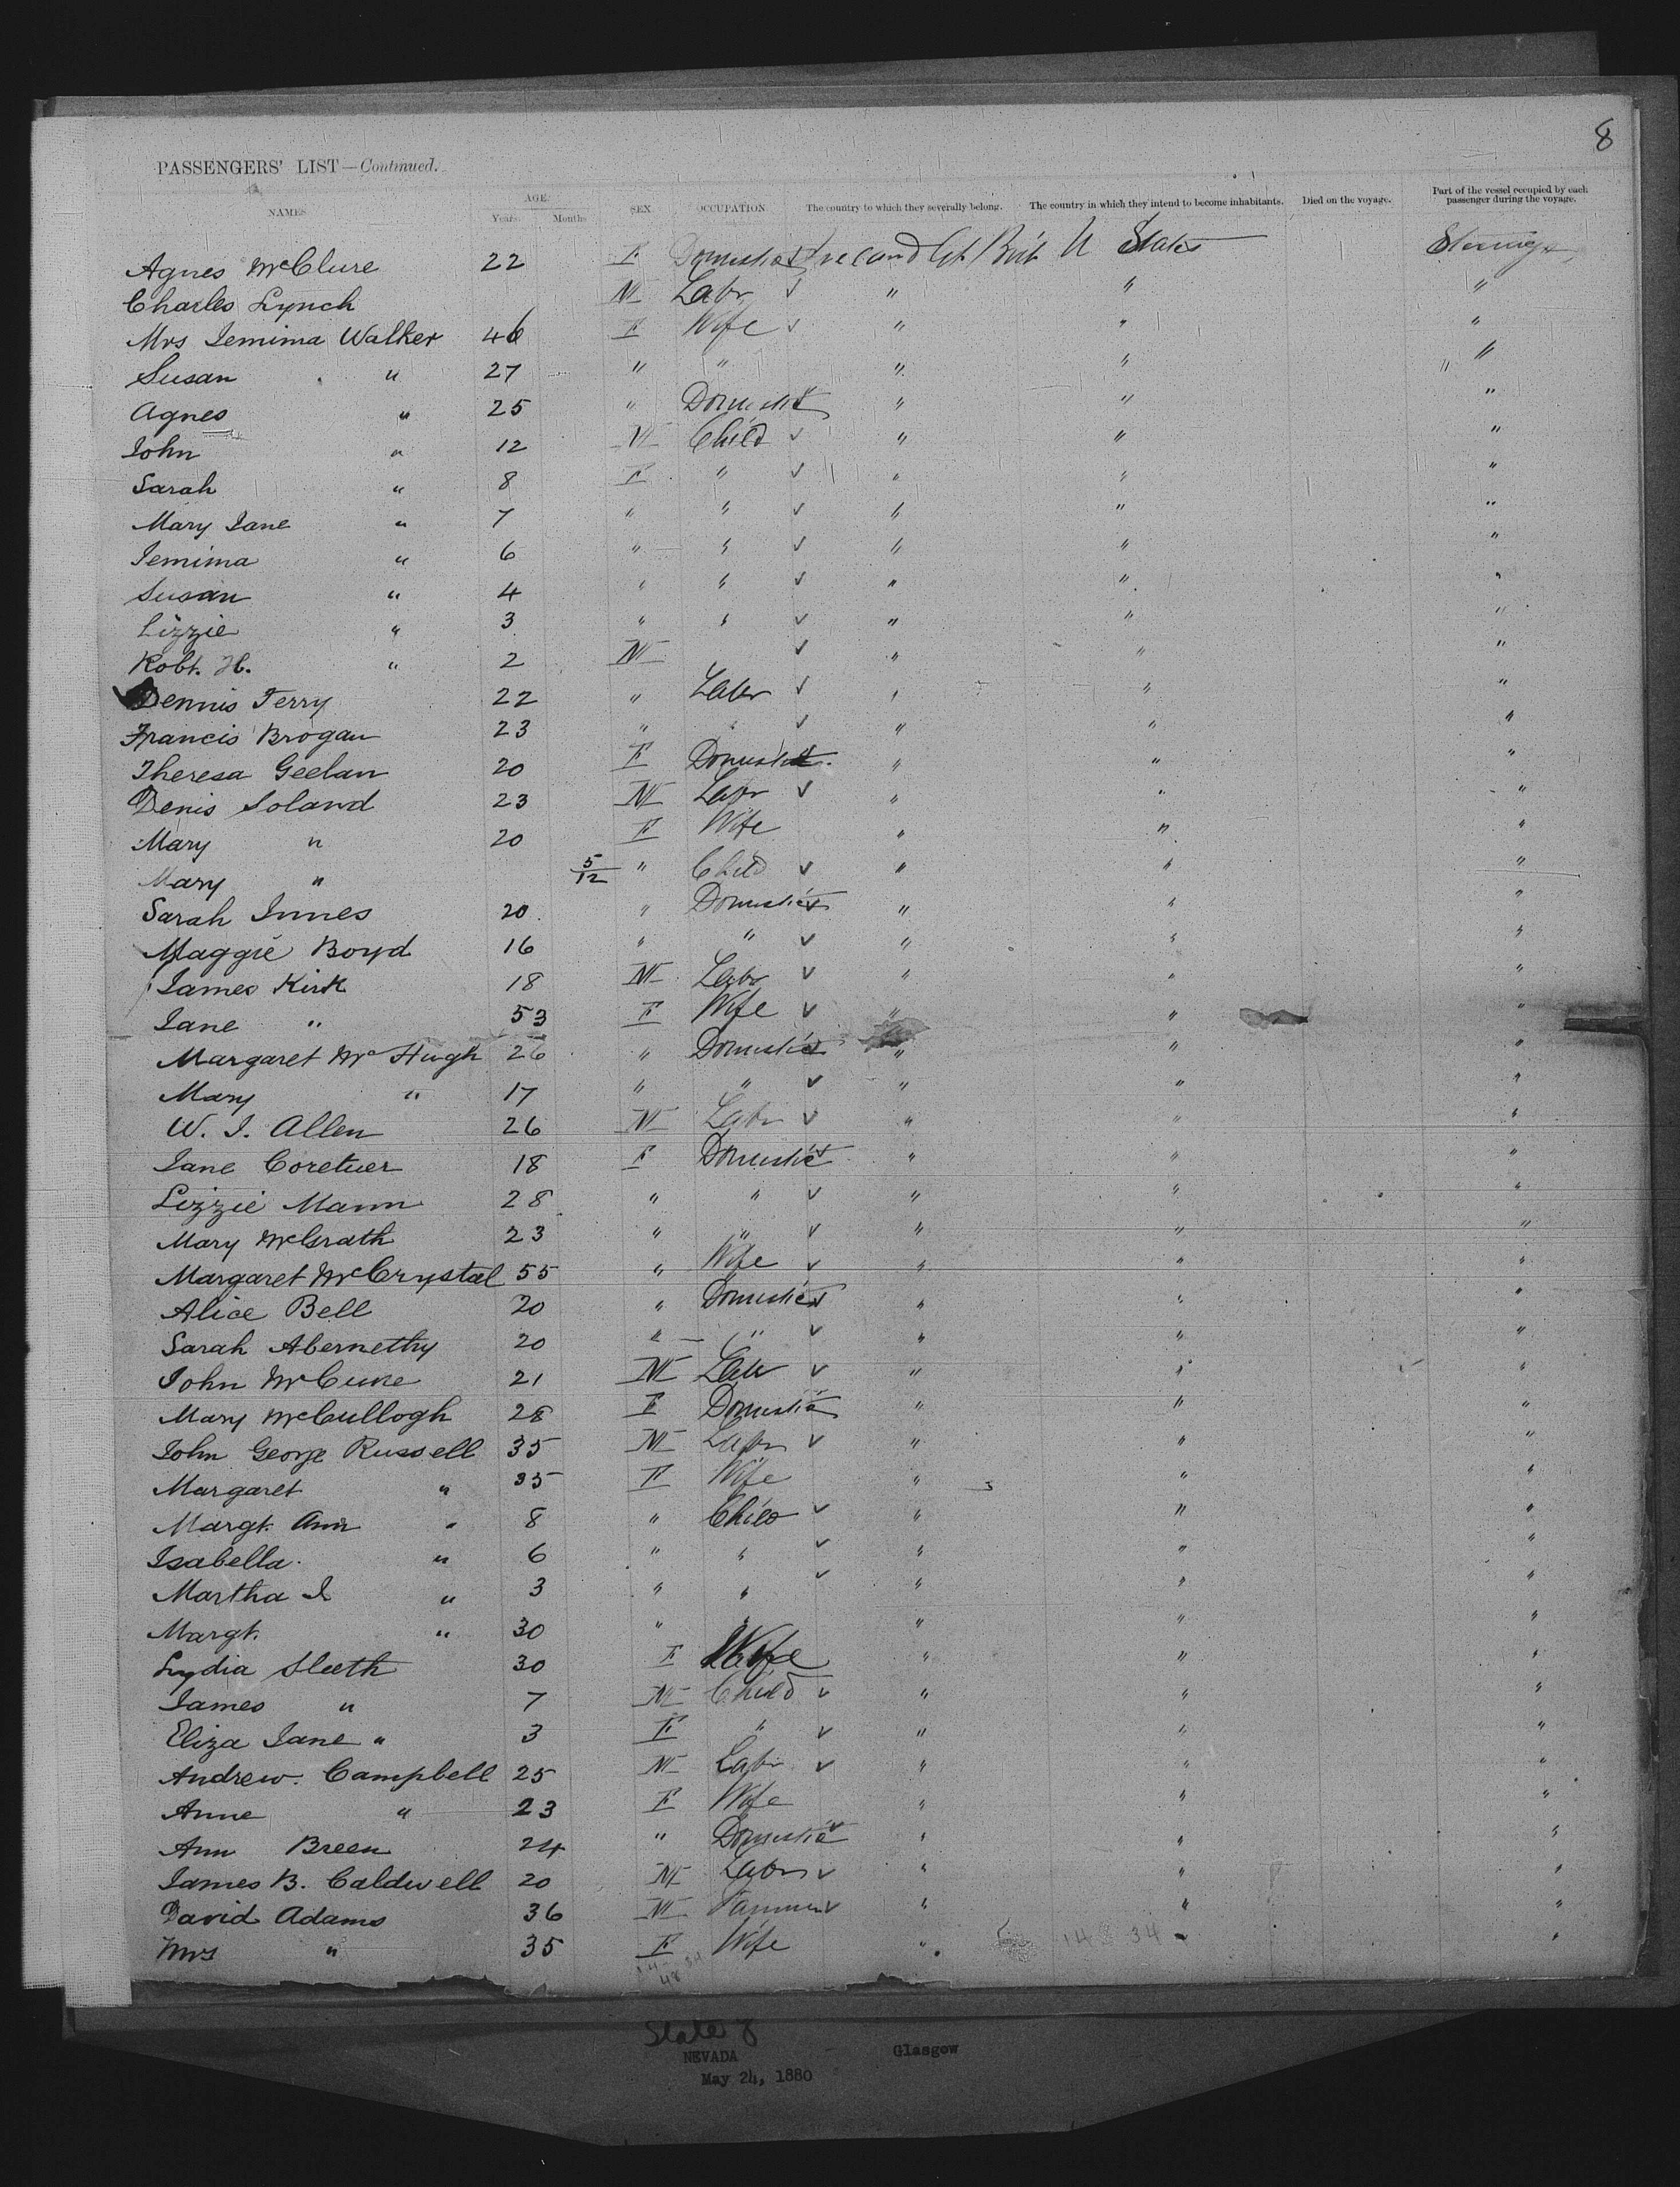 8
PASSENGERS' LIST—Continued.
NAMES AGE Years Months SEX OCCUPATION The country to which they severally belong. The country in which they intend to become inhabitants. Died on the voyage. Part of the vessel occupied by each passenger during the voyage.
Agnes McClure 22 F Domestic Ireland Gt Brit U States Steerage
Charles Lynch M Labr " " "
Mrs Jemima Walker 46 F Wife " " "
Susan " 27 " " " " "
Agnes " 25 " Domestic " " "
John " 12 M Child " " "
Sarah " 8 F " " " "
Mary Jane " 7 " " " " "
Jemima " 6 " " " " "
Susan " 4 " " " " "
Lizzie " 3 " " " " "
Robt. H. " 2 M " " "
Dennis Terry 22 " Labr " " "
Francis Brogan 23 " " " " "
Theresa Geelan 20 F Domestic " " "
Denis Soland 23 M Labr " " "
Mary " 20 F Wife " " "
Mary " 5/12 " Child " " "
Sarah Innes 20 " Domestic " " "
Maggie Boyd 16 " " " " "
James Kirk 18 M Labr " " "
Jane " 53 F Wife " " "
Margaret McHugh 26 " Domestic " " "
Mary " 17 " " " " "
W. J. Allen 26 M Labr " " "
Jane 18 F Domestic " " "
Lizzie Mann 28 " " " " "
Mary McGrath 23 " " " " "
Margaret McCrystal 55 " Wife " " "
Alice Bell 20 " Domestic " " "
Sarah Abernethy 20 " " " " "
John McCune 21 M Labr " " "
Mary McCullogh 28 F Domestic " " "
John George Russell 35 M Labr " " "
Margaret " 35 F Wife " " "
Margt. Ann " 8 " Child " " "
Isabella " 6 " " " " "
Martha J " 3 " " " " "
Margt. " 30 " " " " "
Lydia Sleeth 30 F Wife " " "
James " 7 M Child " " "
Eliza Jane " 3 F " " " "
Andrew Campbell 25 M Labr " " "
Anne " 23 F Wife " " "
Ann Breen 24 " Domestic " " "
James B. Caldwell 20 M Labr " " "
David Adams 36 M Farmer " " "
Mrs " 35 F Wife " 14 34 " "
14 34
48
State of
NEVADA Glasgow
May 24, 1880